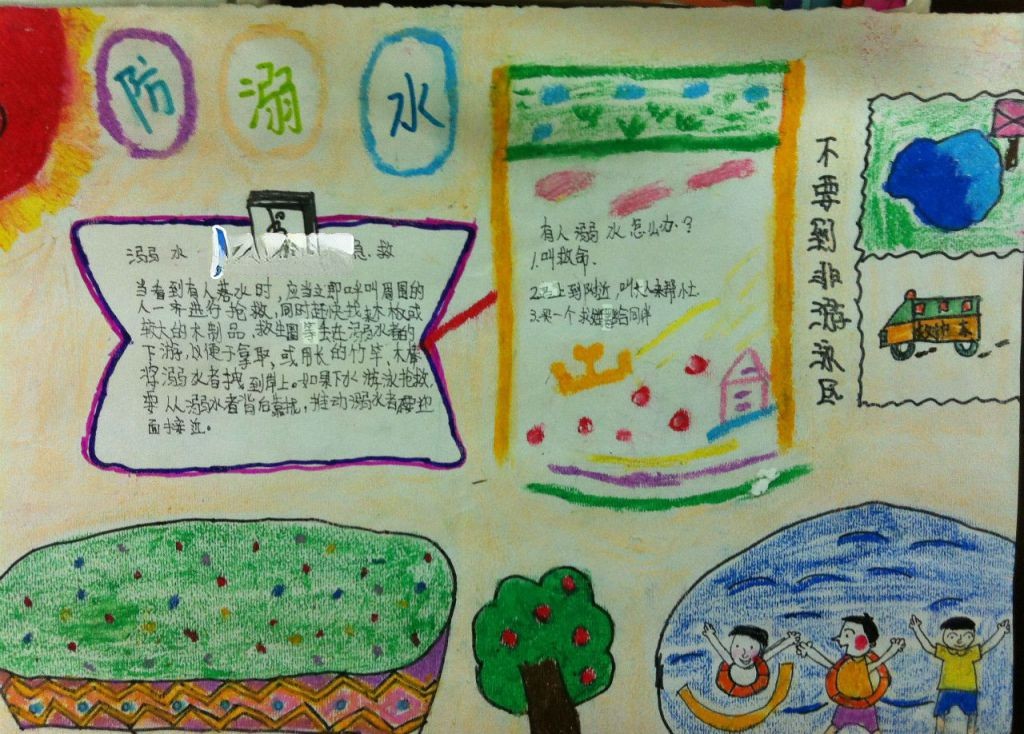 防 溺 水
溺水 急救
当看到有人落水时,应当立即呼叫周围的
人一齐进行抢救,同时赶快找木板或
较大的木制品、救生圈等丢在溺水者的
下游,以便于拿取,或用长的竹竿,木
将溺水者拽到岸上。如果下水游泳抢救,
要从溺水者背后靠拢,推动溺水者 迎
面接近。
有人溺水怎么办?
1.叫救命.
2.马上到附近,叫大人来帮忙.
3.采一个救 给同伴
不要到非游泳区